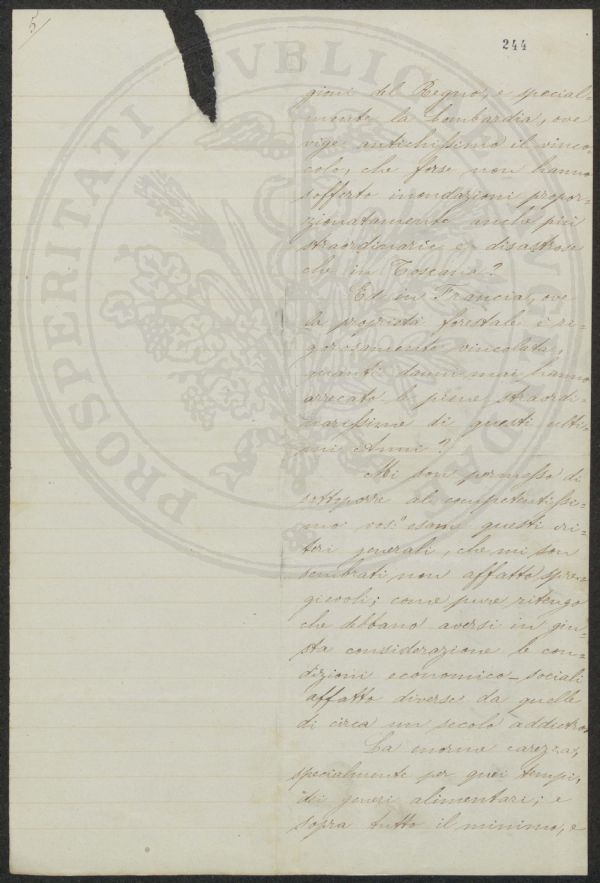 5
244
PROSPERITATI PVBLICAE AVGENDAE
gioni del Regno, e special-
mente la Lombardia, ove
vige antichissimo il vinco-
colo, che forse non hanno
sofferto inondazioni propor-
zionatamente anche più
straordinarie e disastrose
che in Toscana?
Ed in Francia, ove
la proprietà forestale è ri-
gorosamente vincolata,
quanti danni mai hanno
arrecato le piene straordi-
narissime di questi ulti-
mi Anni?
Mi son permesso di
sottoporre al competentissi-
mo vos.º esame questi cri-
teri generali, che mi son
sembrati non affatto spre-
gievoli; come pure ritengo
che debbano aversi in giu-
sta considerazione le con-
dizioni economico-sociali
affatto diverse da quelle
di circa un secolo addietro.
La enorme carezza,
specialmente per quei tempi,
dei generi alimentari; e
sopra tutto il minimo, e